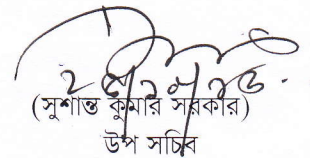 (সুশান্ত কুমার সরকার)
উপ সচিব